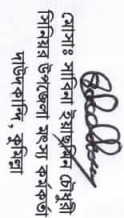 মোসাঃ সাবিনা ইয়াছমিন চৌধুরী
সিনিয়র উপজেলা মৎস্য কর্মকর্তা
দাউদকান্দি, কুমিল্লা